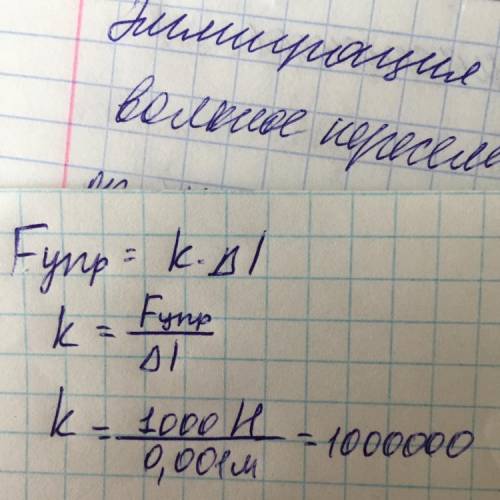 Эммиграция
вольное пересел
Fупр = k · Δl
k = Fупр / Δl
k = 1000 Н / 0,001м = 1000000